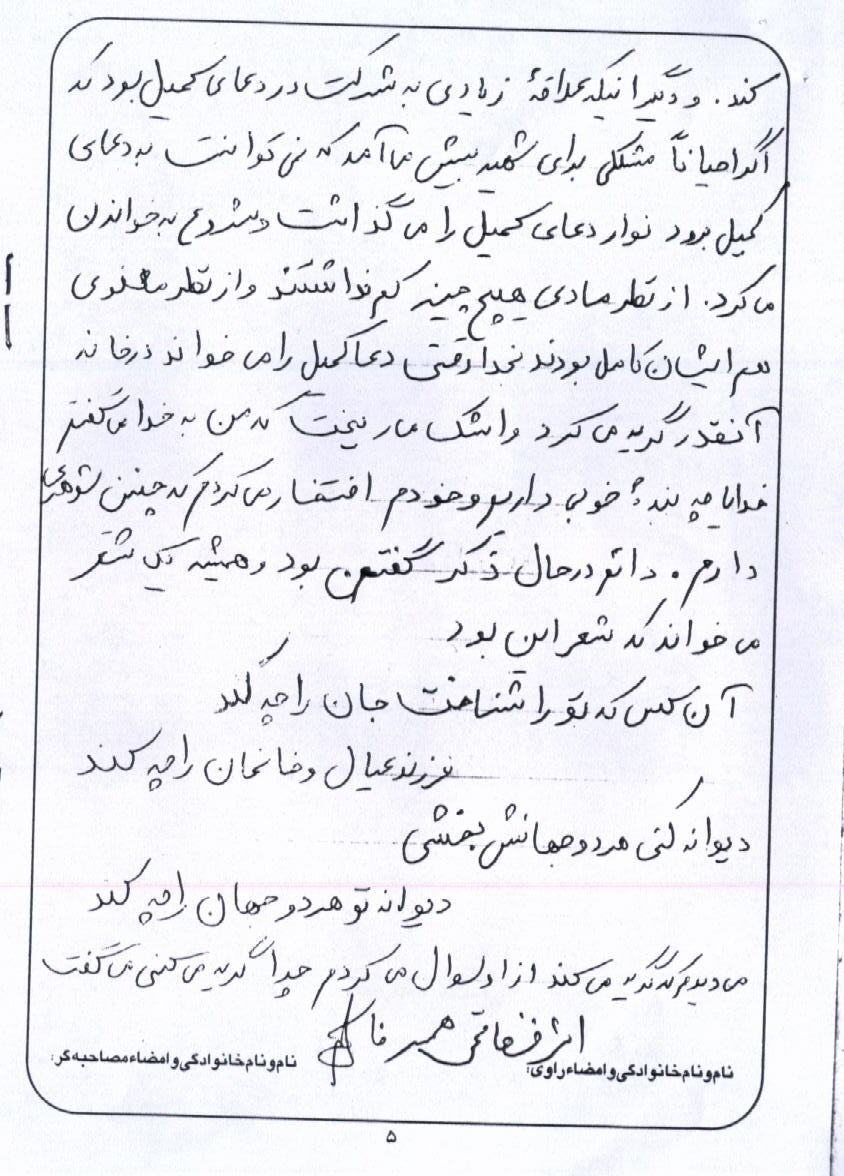 کند. و دیگر اینکه علاقهٔ زیادی به شرکت در دعای کمیل بود که
اگر احیاناً مشکلی برای شهید پیش می‌آمد که نمی‌توانست به دعای
کمیل برود نوار دعای کمیل را می‌گذاشت و شروع به خواندن
می‌کرد. از نظر مادی هیچ چیز کم نداشتند و از نظر معنوی
هم ایشان کامل بودند بخدا وقتی دعا کمیل را می‌خواند در خانه
آنقدر گریه می‌کرد و اشک می‌ریخت که من به خدا می‌گفتم
خدایا چه بندهٔ خوبی داری و خودم افتخار می‌کردم که چنین شوهری
دارم. دائم در حال ذکر گفتن بود و همیشه یک شعر
می‌خواند که شعر این بود
آن کس که تو را شناخت جان را چه کند
فرزند عیال و خانمان را چه کند
دیوانه کنی هر دو جهانش بخشی
دیوانه تو هر دو جهان را چه کند
می‌دیدم که گریه می‌کند از او سوال می‌کردم چرا گریه می‌کنی می‌گفت
همسر
نام و نام خانوادگی و امضاء راوی: نام و نام خانوادگی و امضاء مصاحبه گر:
۵